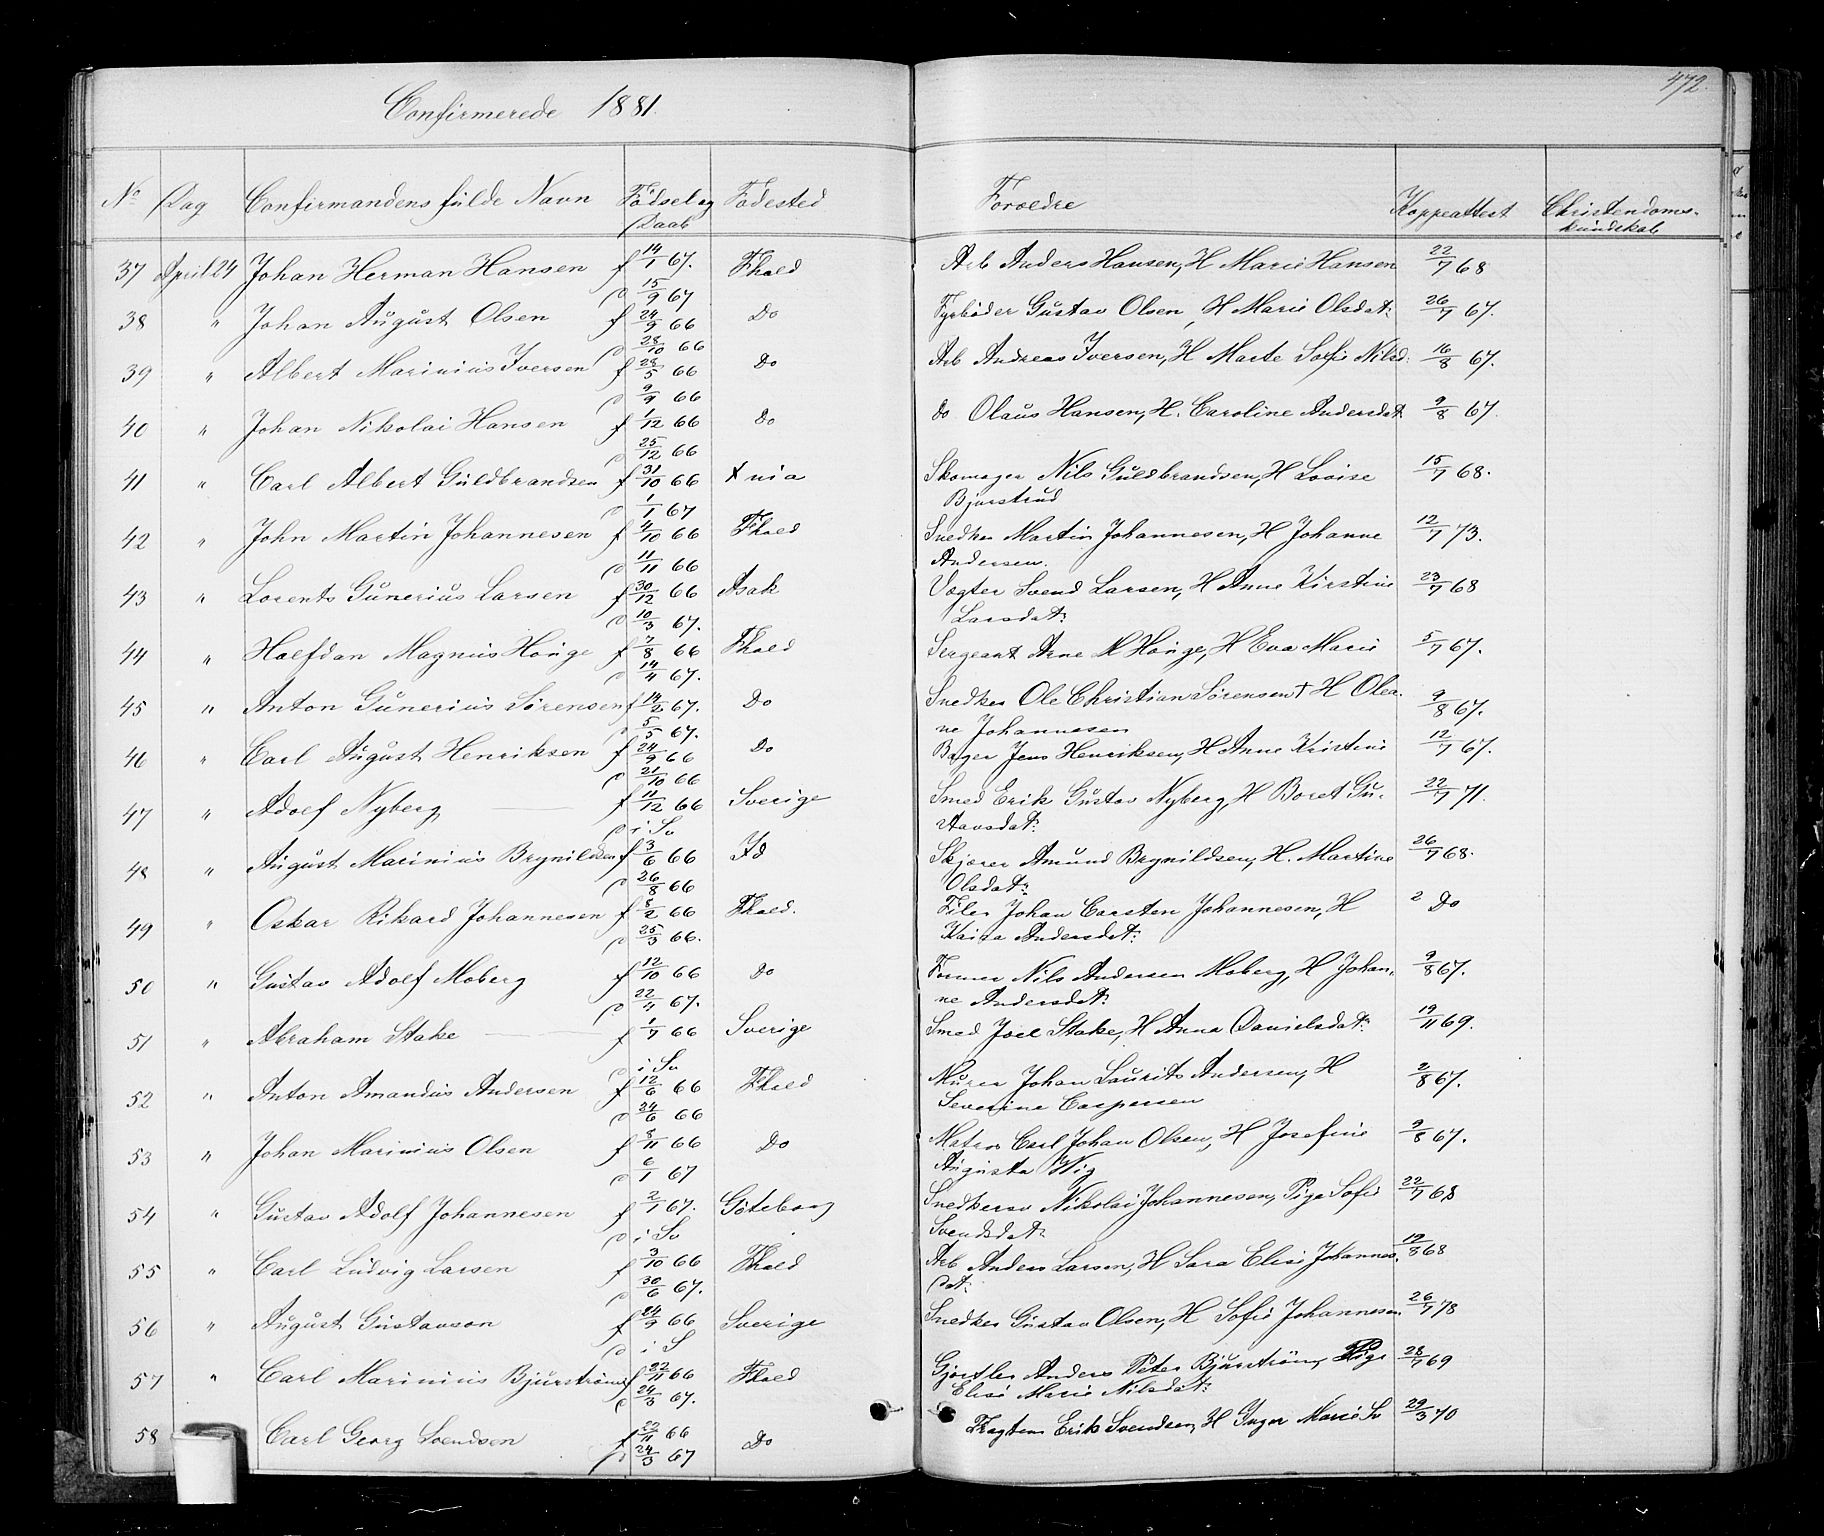 472.
Confirmerede 1881.
No Dag Confirmandens fulde Navn Fødsel og Daab Fødested Forældre Koppeattest Christendomskundskab
37 April 24 Johan Herman Hansen f 14/1 67. Fhald Arb Anders Hansen, H Marie Hansen 22/7 68
d 15/9 67
38 " Johan August Olsen f 24/9 66 Do Fyrbøder Gustav Olsen, H Marie Olsdat: 26/7 67.
d 28/10 66
39 " Albert Marinius Iversen f 28/5 66 Do Arb Andreas Iversen, H Marte Sofie Nilsd: 16/8 67.
d 9/9 66
40 " Johan Nikolai Hansen f 1/12 66 Do do Olaus Hansen, H. Caroline Andersdat: 9/8 67.
d 25/12 66
41 " Carl Albert Guldbrandsen f 31/10 66 Xnia Skomager Nils Guldbrandsen, H Lovise 15/7 68.
d 1/1 67 Bjurstrud
42 " John Martin Johannesen f 4/10 66 Fhald Snedker Martin Johannesen, H Johanne 12/7 73.
d 11/11 66 Andersen.
43 " Lorents Gunerius Larsen f 30/12 66 Asak Vægter Svend Larsen, H Anne Kirstine 23/7 68
d 10/3 67. Larsdat:
44 " Halfdan Magnus Hauge f 7/8 66 Fhald Sergeant Arne M Hauge, H Eva Marie 5/7 67.
d 14/4 67.
45 " Anton Gunerius Sørensen f 14/2 67. Do Snedker Ole Christian Sørensen † H Olea- 9/8 67.
d 5/5 67. ne Johannesen
46 " Carl August Henriksen f 24/9 66 Do Bager Jens Henriksen, H Anne Kristine 12/7 67.
d 21/10 66
47 " Adolf Nyberg f 11/12 66 Sverige Smed Erik Gustav Nyberg, H Boret Gu- 22/7 71.
d i Sv stavsdat:
48 " August Marinius Brynildsen f 3/6 66 Id Skjærer Amund Brynildsen, H. Martine 26/7 68.
d 26/8 66 Olsdat:
49 " Oskar Rikard Johannesen f 8/2 66 Fhald. Filer Johan Carsten Johannesen, H 2 Do
d 25/3 66. Kaisa Andersdat:
50 " Gustav Adolf Moberg f 12/10 66 Do Former Nils Andersen Moberg, H Johan- 9/8 67.
d 22/4 67. ne Andersdat:
51 " Abraham Stake f 1/7 66 Sverige Smed Joel Stake, H Anna Danielsdat: 19/11 69.
d i Sv
52 " Anton Amandus Andersen f 12/6 66 Fhald Murer Johan Laurits Andersen, H 2/8 67.
d 24/6 66 Severine Caspersen
53 " Johan Marinius Olsen f 8/11 66 Do Matros Carl Johan Olsen, H Josefine 9/8 67.
d 6/1 67 Augusta Wig
54 " Gustav Adolf Johannesen f 2/1 67. Göteborg Snedkersv Nikolai Johannesen, Pige Sofie 22/7 68
d i Sv Svendsdat:
55 " Carl Ludvig Larsen f 3/10 66 Fhald Arb Anders Larsen, H Sara Elise Johannes- 19/8 68
d 30/6 67. dat:
56 " August Gustavson f 24/9 66 Sverige Snedker Gustav Olsen, H Sofie Johannesen 26/7 78
d i S
57 " Carl Marinius Bjurstrøm f 22/11 66 Fhald Gjørtler Anders Peter Bjurstrøm, Pige 28/7 69
d 24/3 67. Elise Marie Nilsdat:
58 Carl Georg Svendsen f 22/11 66 Do Fragtem Erik Svendsen, H Inger Marie Sv 29/3 70
d 24/3 67